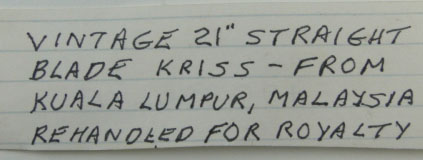 VINTAGE 21" STRAIGHT
BLADE KRISS - FROM
KUALA LUMPUR, MALAYSIA
REHANDLED FOR ROYALTY